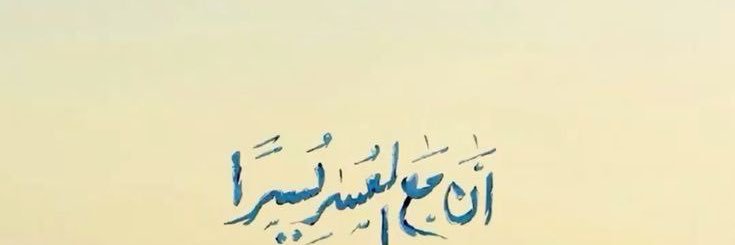 إنَّ مَعَ العُسْرِ يُسْرًا